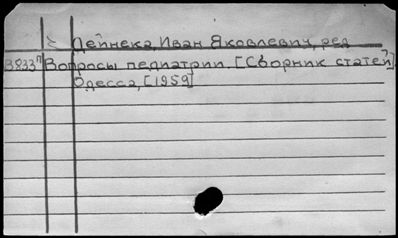 Дейнека, Иван Яковлевич, ред.
3833п Вопросы педиатрии. [Сборник статей]
Одесса, [1959]